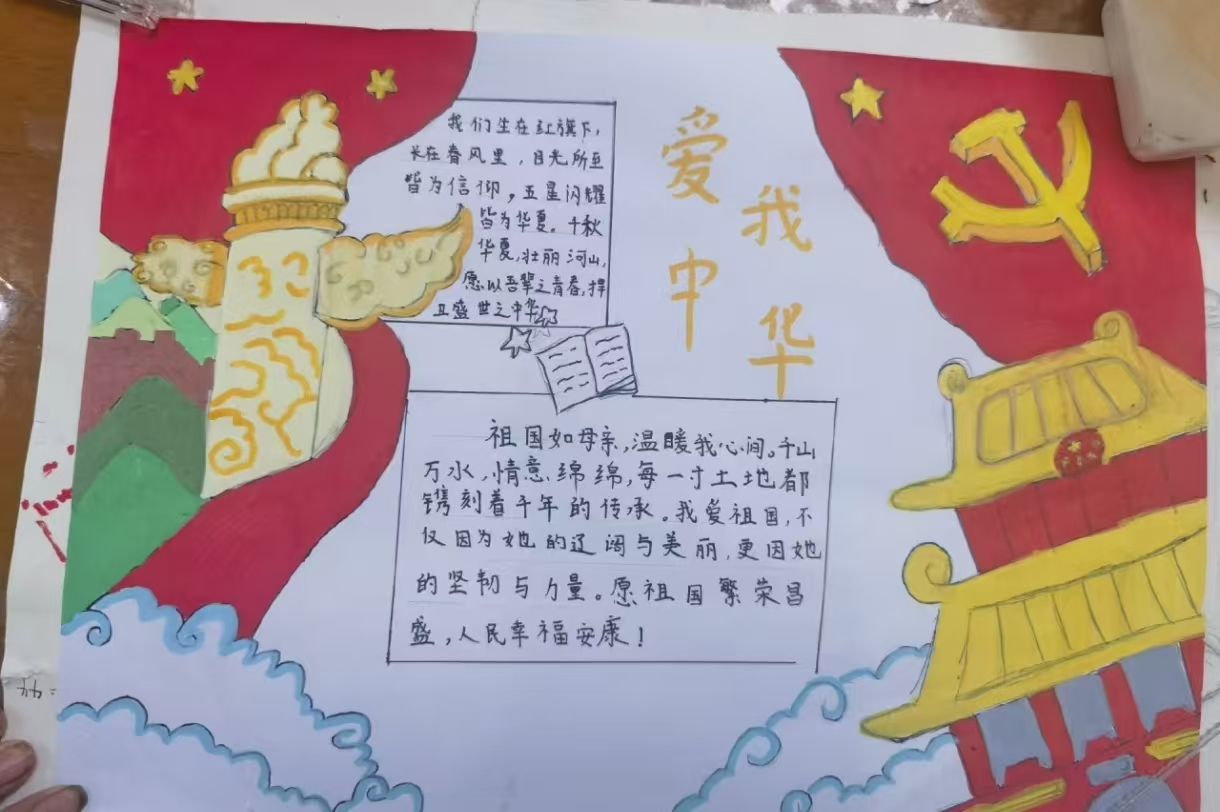 爱我中华
我们生在红旗下,
长在春风里,目光所至
皆为信仰,五星闪耀
皆为华夏。千秋
华夏,壮丽河山,
愿以吾辈之青春,捍
卫盛世之中华
祖国如母亲,温暖我心间。千山
万水,情意绵绵,每一寸土地都
镌刻着千年的传承。我爱祖国,不
仅因为她的辽阔与美丽,更因她
的坚韧与力量。愿祖国繁荣昌
盛,人民幸福安康!